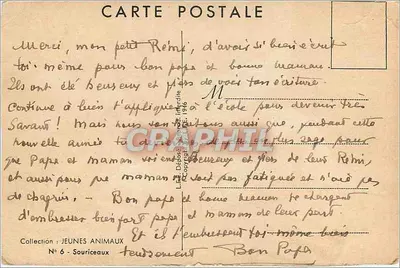 CARTE POSTALE
Merci, mon petit Rémi, d'avoir si bien écrit
toi-même pour bon papa et bonne maman.
Ils ont été heureux et fiers de voir ton écriture.
Continue à bien t'appliquer à l'école pour devenir très
savant! Mais nous souhaitons aussi que, pendant cette
nouvelle année tu sage pour
que Papa et maman soient heureux et fiers de leur Rémi,
et aussi pour que maman soit pas fatiguée et n'aie pas
de chagrin. - Bon papa et bonne maman te chargent
d'embrasser bien fort papa et maman de leur part.
Et ils t'embrassent toi-même bien
tendrement Bon Papa
M
CPAPHIL
Collection : JEUNES ANIMAUX
N° 6 - Souriceaux